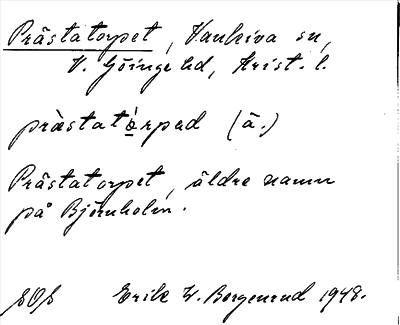 Prästatorpet, Vankiva sn,
V. Göinge hd, Krist. l.
præ̀statȯ́rpad (ä.)
Prästatorpet, äldre namn
på Björnholm.
SOS Erik W. Bergenrud 1948.